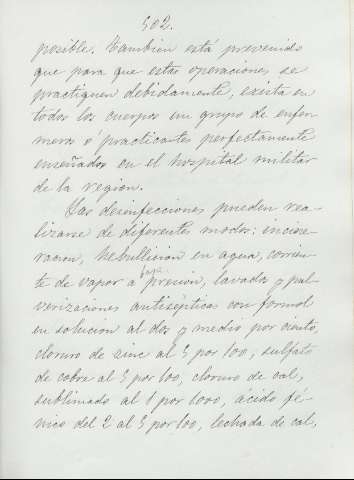 502.
posible. Tambien está prevenido
que para que estas operaciones se
practiquen debidamente, exista en
todos los cuerpos un grupo de enfer-
meros ó practicantes perfectamente
enseñados en el hospital militar
de la region.
Las desinfecciones pueden rea-
lizarse de diferentes modos: incine-
racion, hebullicion en agua, corrien-
te de vapor a bajo presion, lavado y pul-
verizaciones antisépticas con formol
en solucion al dos y medio por ciento,
cloruro de zinc al 5 por 100, sulfato
de cobre al 5 por 100, cloruro de cal,
sublimado al 1 por 1000, acido fé-
nico del 2 al 5 por 100, lechada de cal,